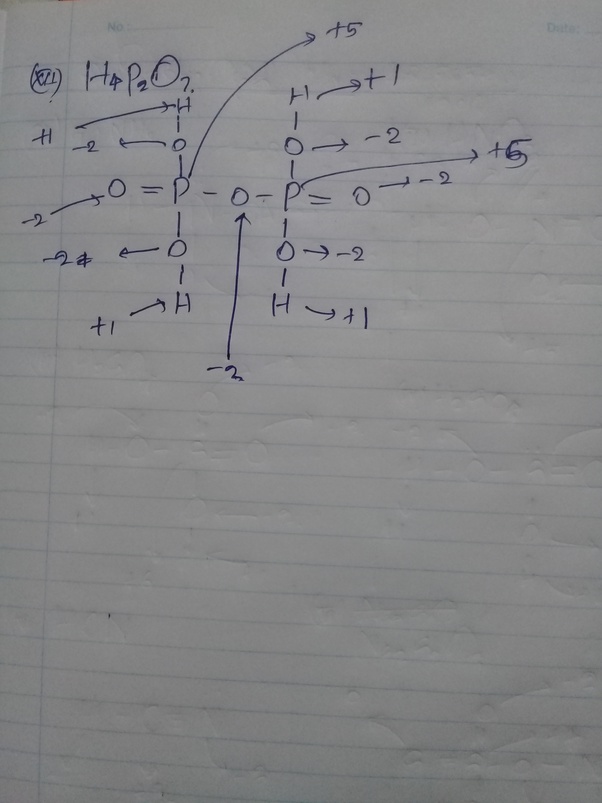 No: Date:
+5
(XII) H4P2O7
H H → +1
+1 -2 ← O O → -2
+5
O = P - O - P = O → -2
-2
-2 ← O O → -2
+1 → H H → +1
-2